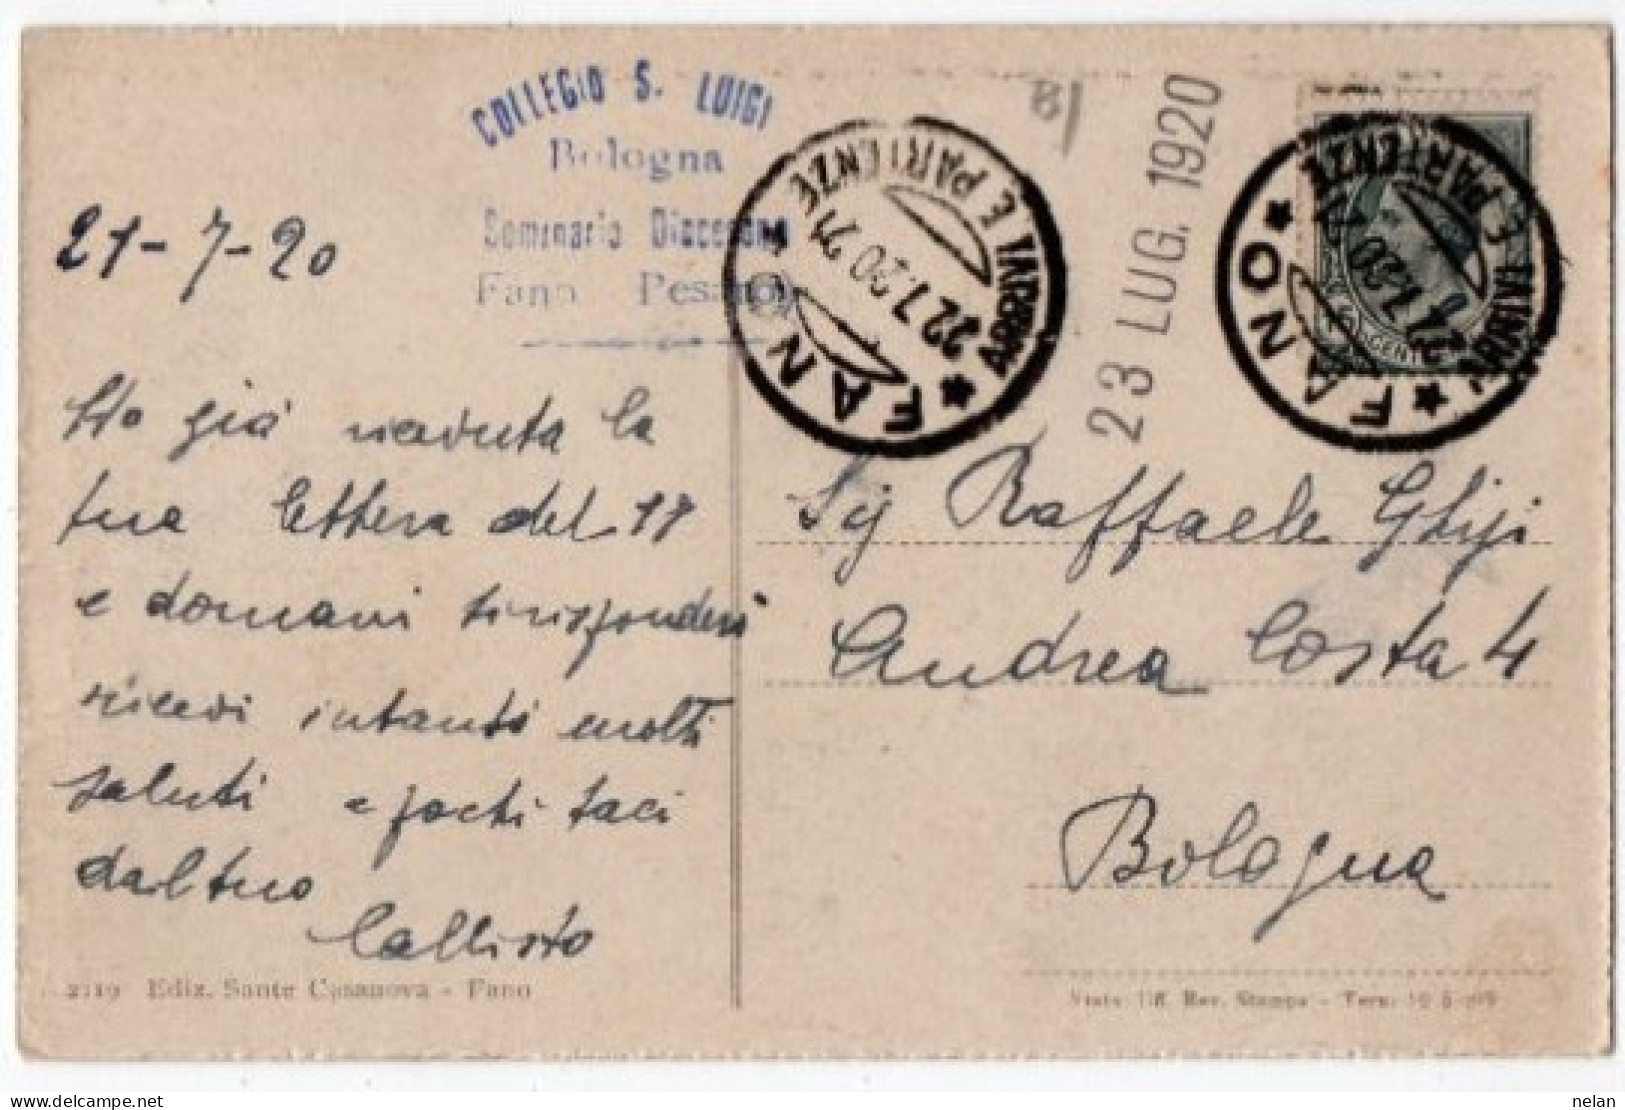 COLLEGIO S. LUIGI
Bologna
Seminario Diocesano
Fano Pesaro
21-7-20
Ho già ricevuta la
tua lettera del 17
e domani ti risponderò
ricevi intanto molti
saluti e
dal tuo
Callisto
2119 Ediz. Sante Casanova - Fano
B/
FANO
ARRIVI E PARTENZE
22.7.20 21
23 LUG. 1920
FANO
ARRIVI E PARTENZE
CENT
Sig Raffaele Ghigi
Andrea Costa 4
Bologna
Visto Uff. Rev. Stampa - Verr.
nelan